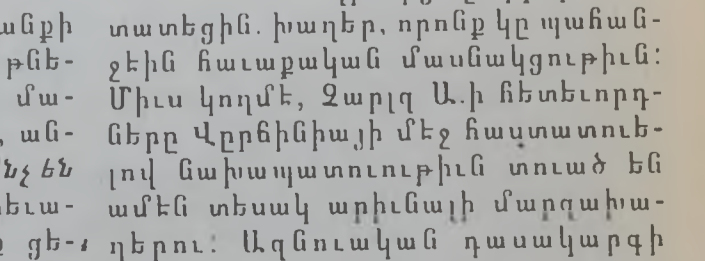 անքի
թնե-
մա-
ան-
նչ են
եւա-
ցե-
տատեցին. խաղեր, որոնք կը պահան-
ջէին հաւաքական մասնակցութիւն:
Միւս կողմէ, Չարլզ Ա.ի հետեւորդ-
ները Վըրճինիայի մէջ հաստատուե-
լով նախապատուութիւն տուած են
ամէն տեսակ արիւնալի մարզախա-
ղերու: Ազնուական դասակարգի